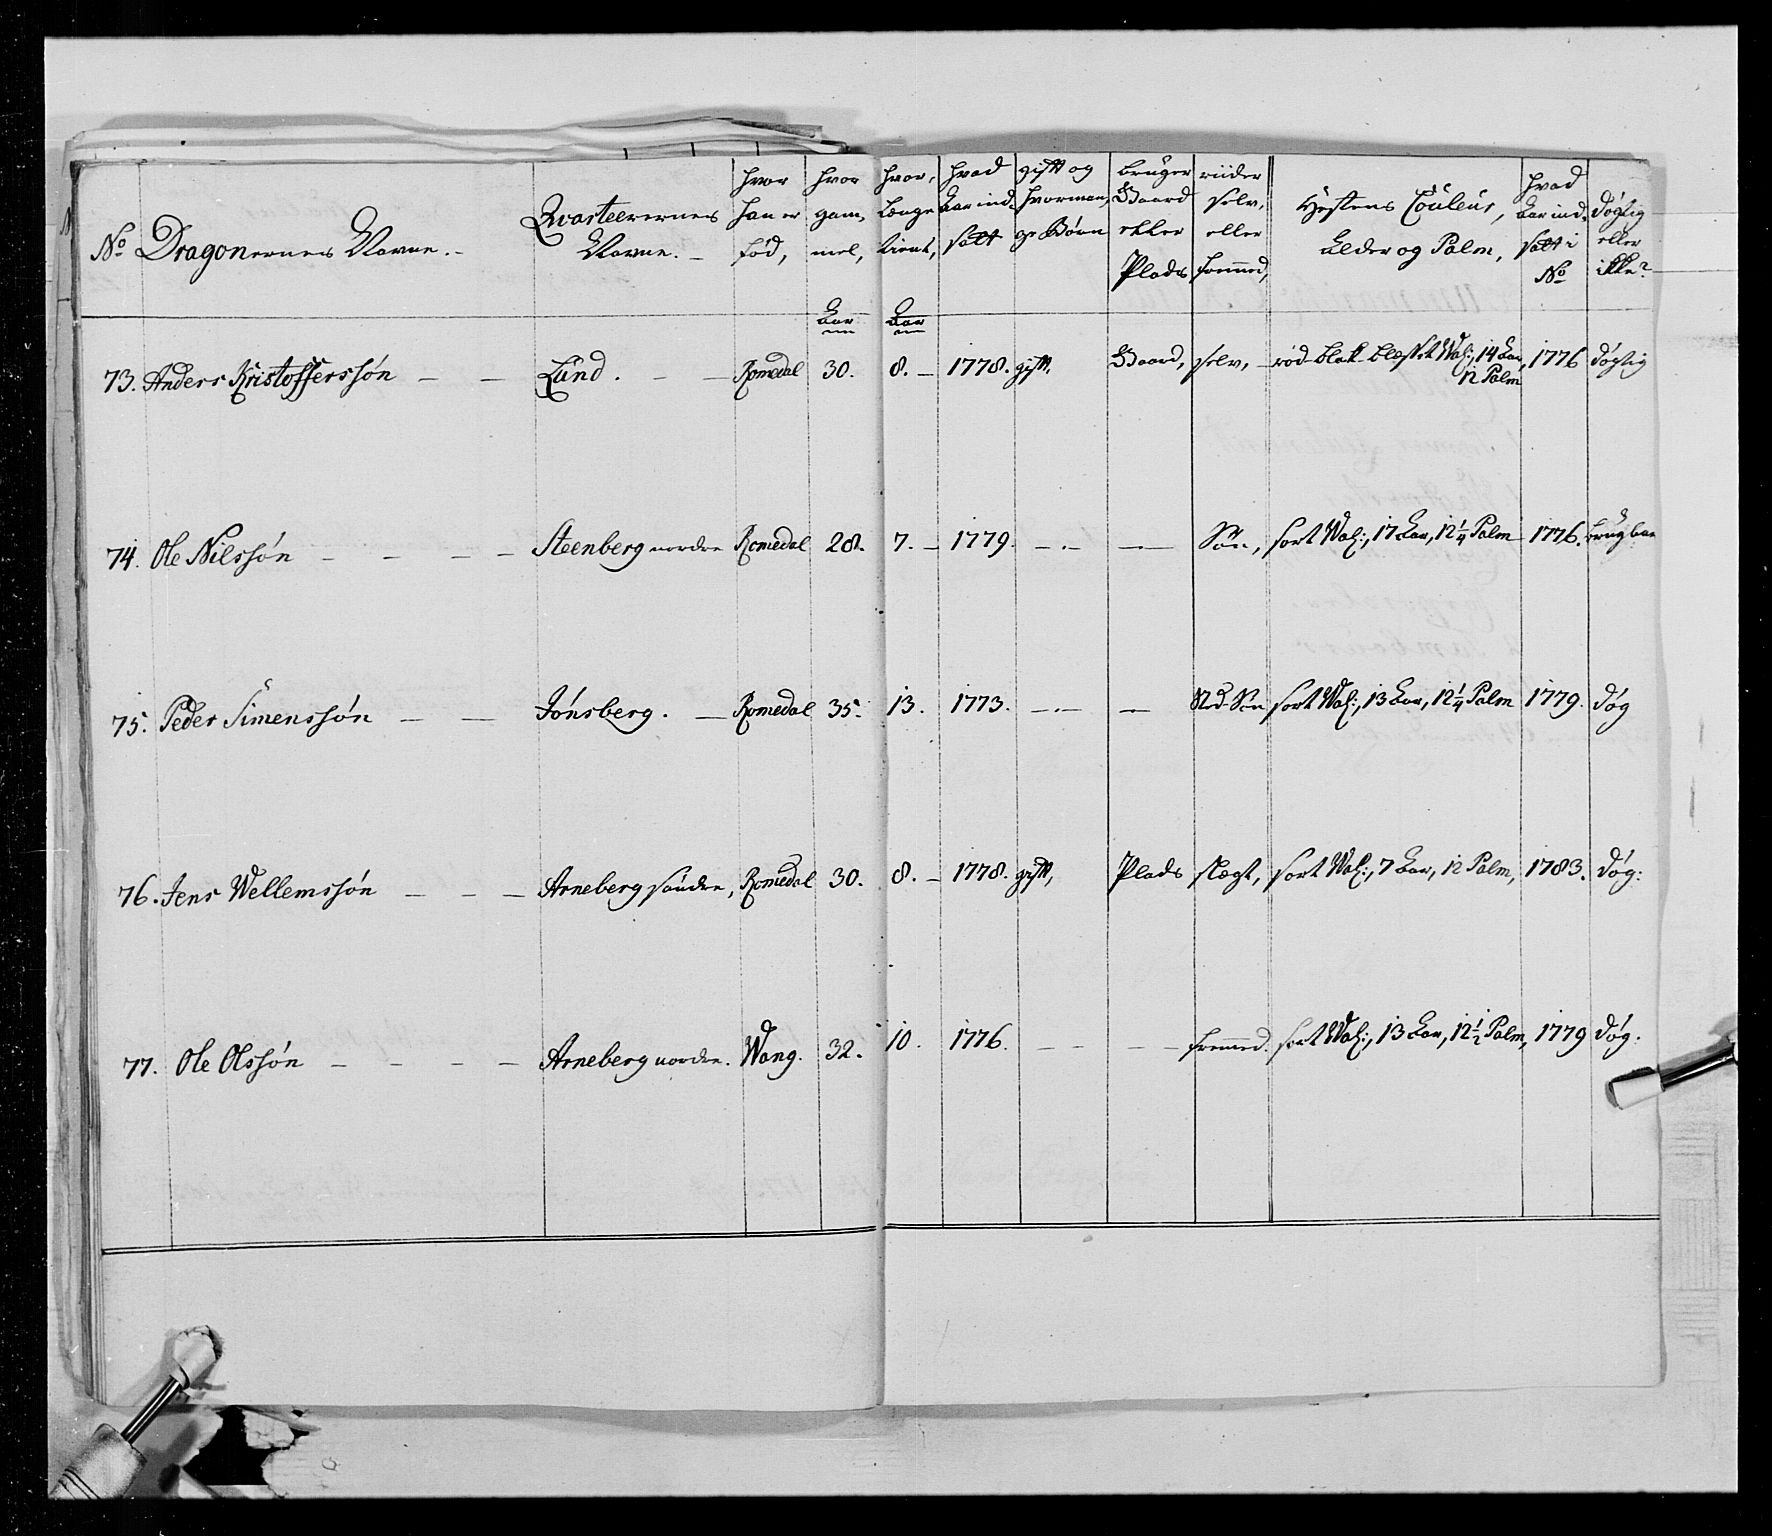 No Dragonernes Navne. Qvarteerernes Navne. hvor han er fød, hvor gam, mel, hvor, længe tient, hvad Aar ind, satt gift og hvor mange Børn bruger Gaard eller Plads riider selv, eller fremmed, Hestens Couleur, Alder og Palm, hvad Aar ind, satt i No døgtig eller ikke?
Aar Aar
73. Anders Kristofferssøn — — Lund. — — Romedal 30. 8. — 1778. gift, Gaard, selv, — rød blak blesset Wal:, 14 Aar, 12 Palm 1776 døgtig
74. Ole Nilssøn — — — — Steenberg nordre Romedal 28. 7. — 1779. —.— — Søn, sort Wal:, 17 Aar, 12 1/4 Palm 1776. brugbar
75. Peder Simenssøn — — Jønsberg. — Romedal 35. 13. 1773. —.— — Sted-Søn sort Wal:, 13 Aar, 12 1/4 Palm 1779. døg
76. Jens Wellemssøn — — — Arneberg søndre, Romedal 30. 8. — 1778. gift, Plads slegt, sort Wal:, 7 Aar, 12 Palm, 1783. døg:
77. Ole Olssøn — — — — Arneberg nordre. Wang. 32. 10. 1776. — — — — fremmed. sort Wal:, 13 Aar, 12 1/2 Palm, 1779 døg.